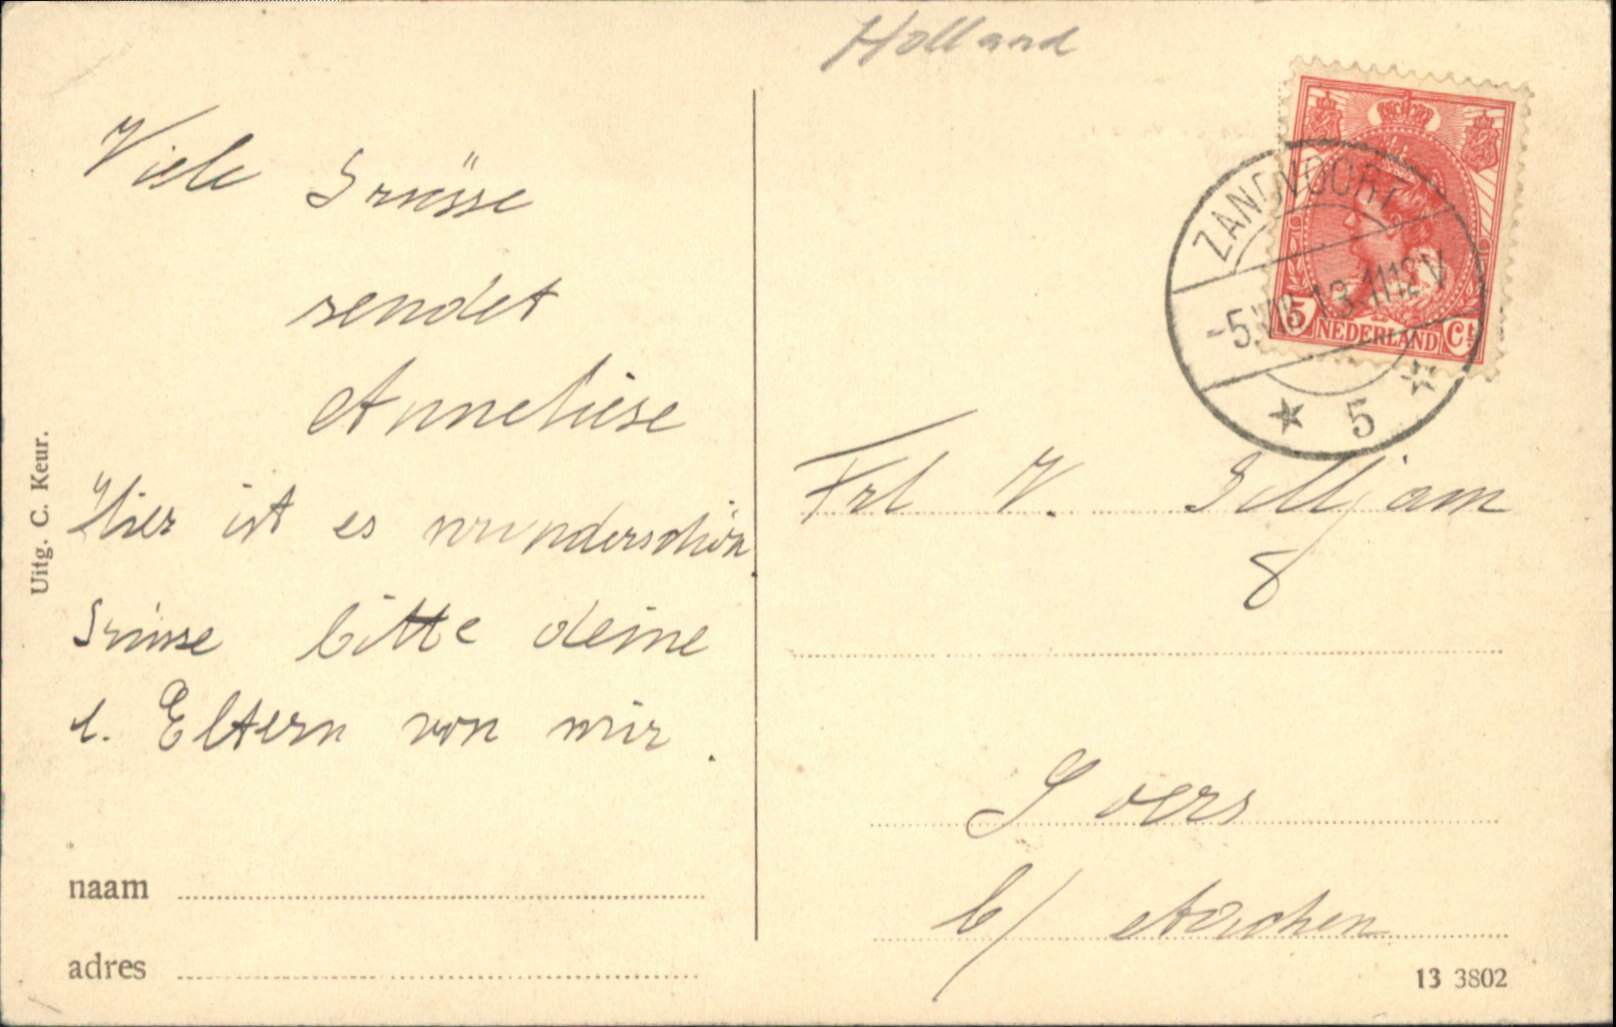 Holland
Viele Grüsse
sendet
Anneliese
Hier ist es wunderschön
Grüsse bitte deine
l. Eltern von mir.
Uitg. C. Keur.
naam
adres
ZANDVOORT
-5.VIII.13.11-12V
5
5 NEDERLAND Ct
Frl V.
Goers
b/ Aachen
13 3802